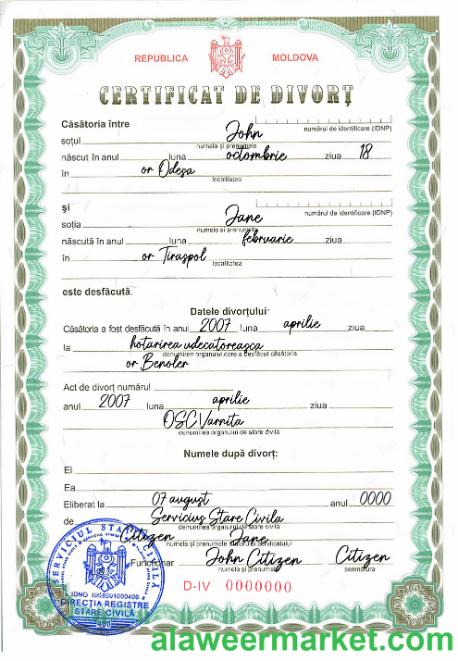 REPUBLICA MOLDOVA
CERTIFICAT DE DIVORȚ
Căsătoria între
numărul de identificare (IDNP)
soțul John
numele și prenumele
născut în anul luna octombrie ziua 18
în or Odesa
localitatea
și
numărul de identificare (IDNP)
soția Jane
numele și prenumele
născută în anul luna februarie ziua
în or Tiraspol
localitatea
este desfăcută.
Datele divorțului
Căsătoria a fost desfăcută în anul 2007 luna aprilie ziua
la hotarirea udecatoreasca
denumirea organului care a desfăcut căsătoria
or Benoler
Act de divorț numărul
anul 2007 luna aprilie ziua
OSC Varnita
denumirea organului de stare civilă
Numele după divorț:
El
Ea
Eliberat la 07 august anul 0000
de Servicius Stare Civila
denumirea organului de stare civilă
Citizen Jane
numele și prenumele
Funcționar John Citizen Citizen
numele și prenumele semnătura
D-IV 0000000
SERVICIUL STARE CIVILĂ
DIRECȚIA REGISTRE
STARE CIVILĂ
400
alaweermarket.com